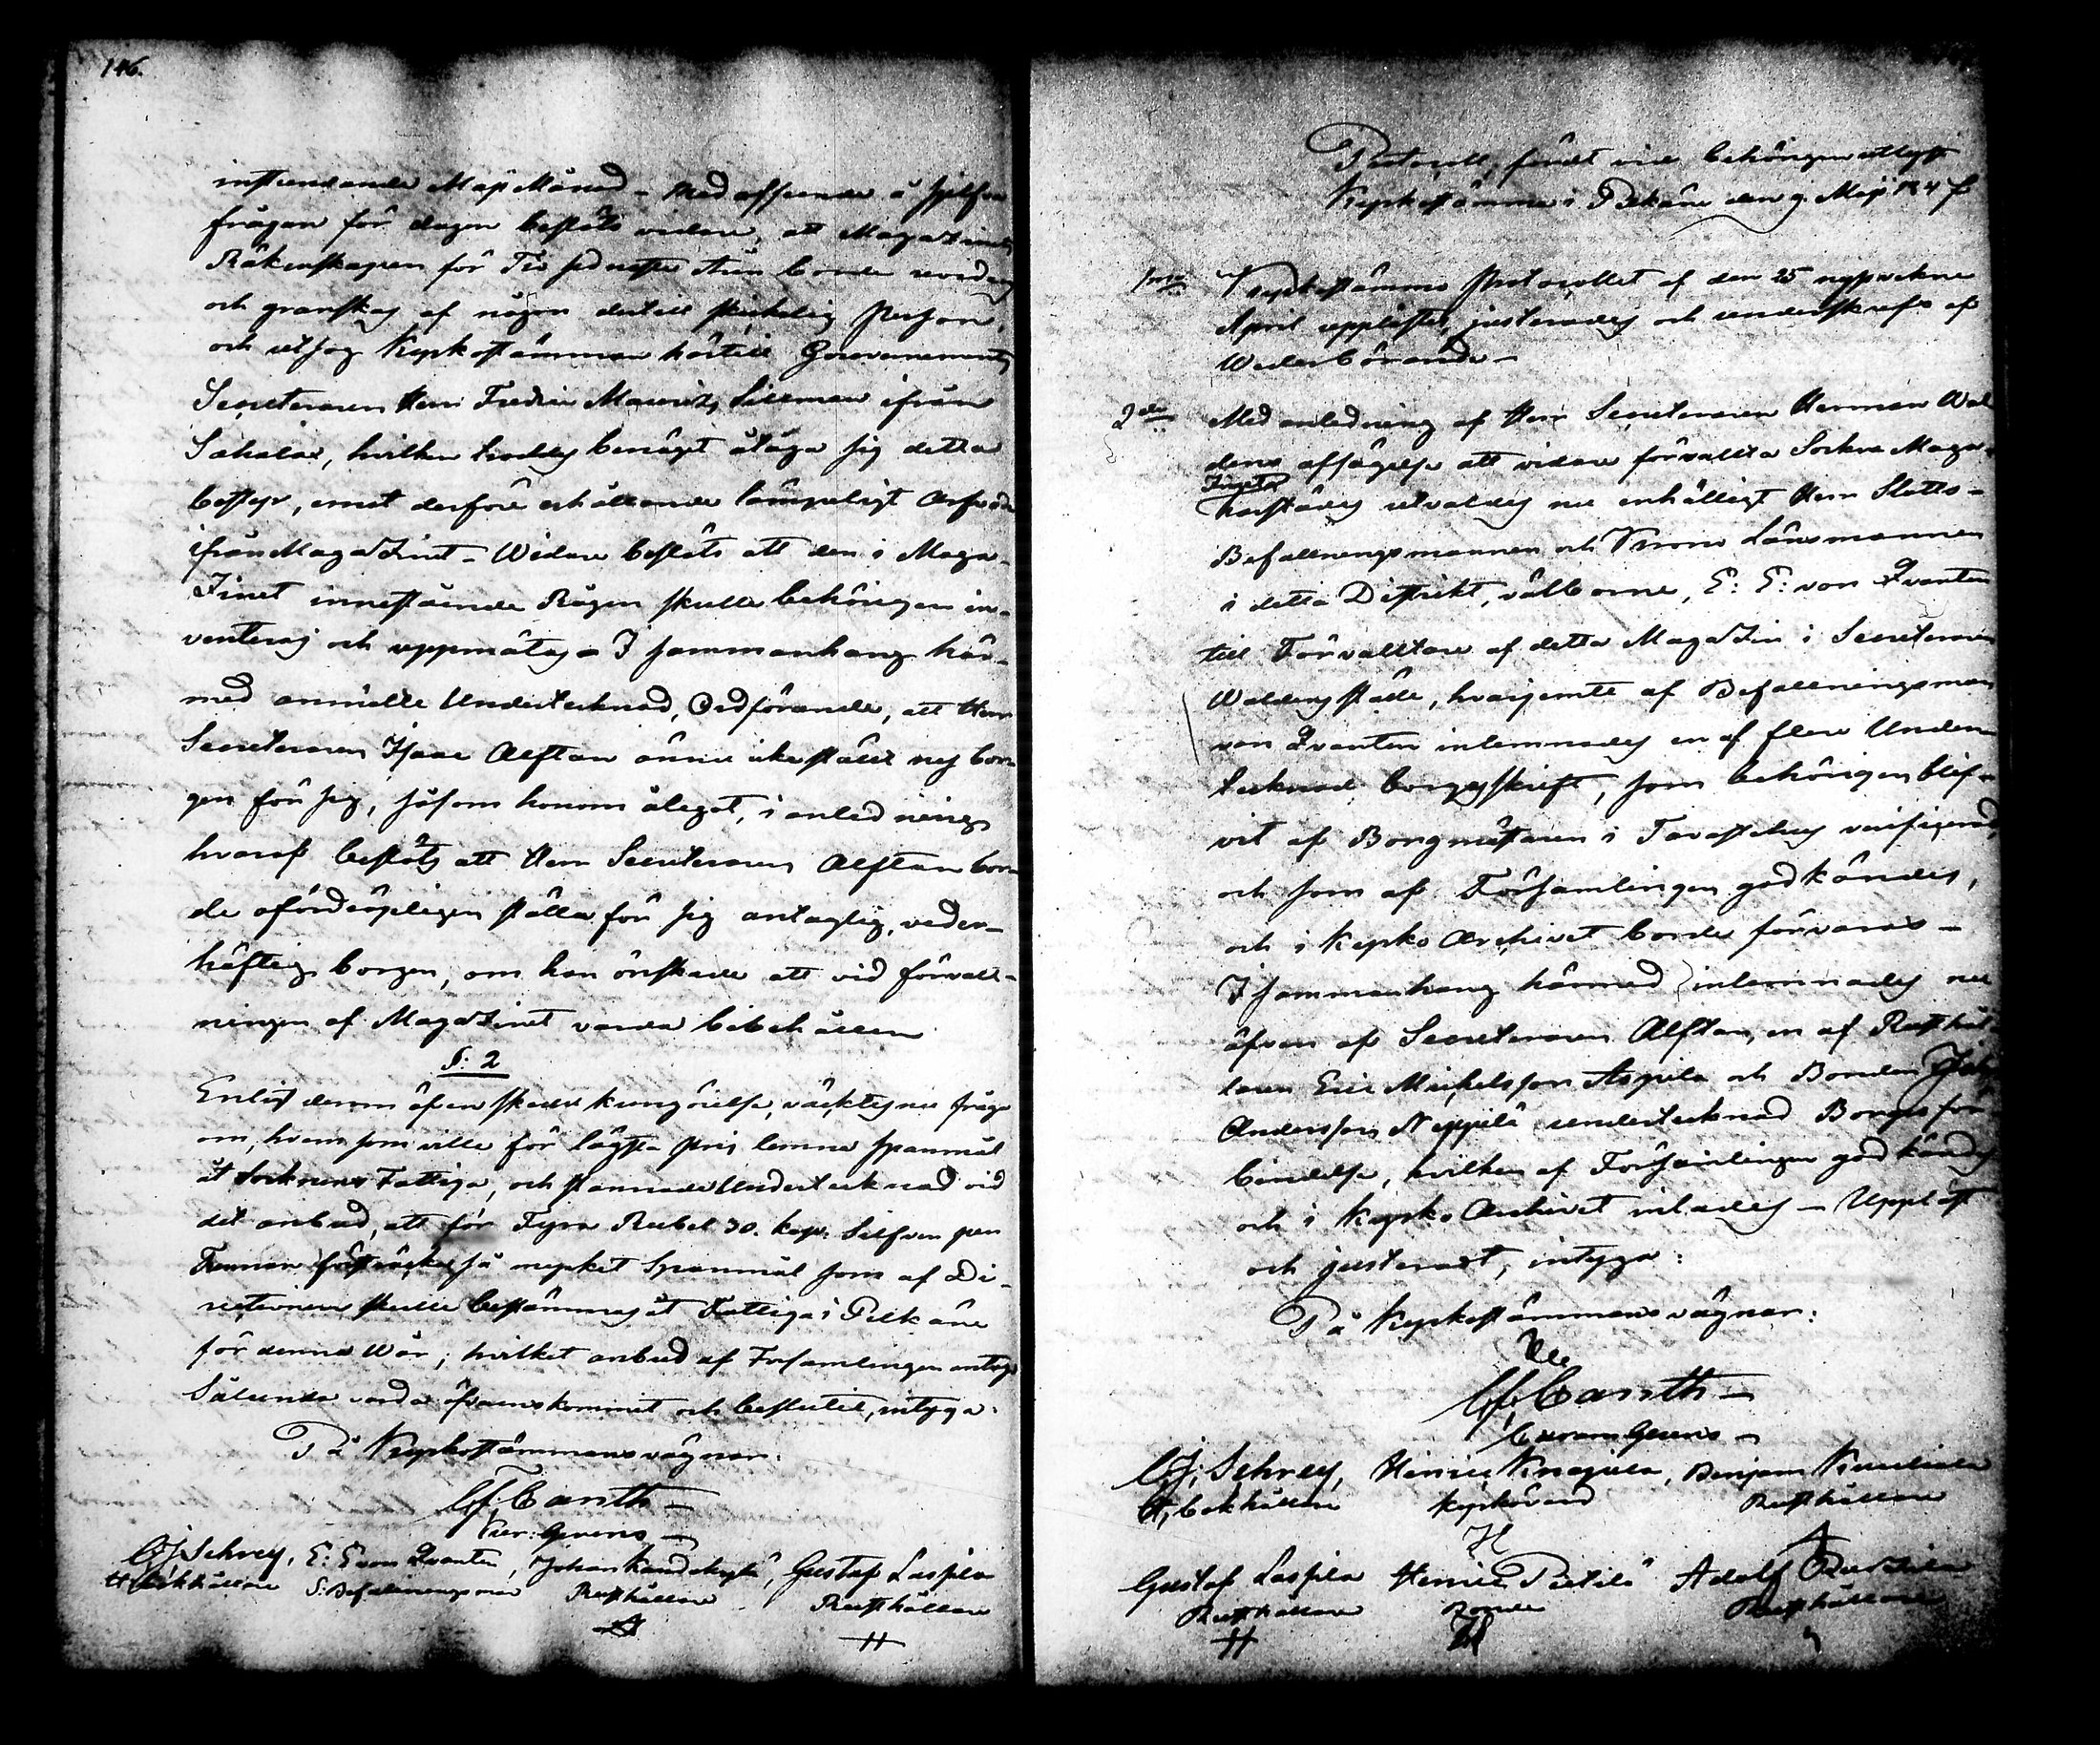 146.
instundande Maji Månad – Med afseende å sjelfva
frågan för dagen beslöts vidare, att Magazinets
Räkenskapen för Tio sednaste Åren borde
och granskas af någon dertill skickelig Person,
och utsåg Kyrkostämman härtill Gouvernements
Secreteraren Herr Fredric Mauritz Silfman ifrån
Sahalax, hvilken troddes benäget åtaga sig detta
bestyr, emot derföre erhållande lämpeligt Arfvode
ifrån Magazinet – Widare beslöts att den i Maga-
Zinet innestående Rågen skulle behörigen in-
venteras och uppmätas – I sammanhang här-
med anmälte Undertecknad, Ordförande, att Herr
Secreteraren Isaac Alftan ännu icke stält ny bor-
gen för sig, såsom honom ålegat, i anledning
hvaraf beslöts att Herr Secreteraren Alftan bor-
de ofördröjeligen ställa för sig antaglig, veder-
häftig borgen, om han önskade att vid förvalt-
ningen af Magazinet varda bibehållen
§. 2
Enligt derom äfven skedd kungörelse, väcktes nu fråga
om, hvem som ville för lägsta pris lemna Spannmål
åt Socknens Fattiga, och stannade Undertecknad vid
det anbud, att för Fyra Rubel 30. kop. Silfver per
Tunnan så mycket Spannmål som af Di-
rectionen skulle bestämmas åt Fattiga i Pelkäne
för denna Wår; hvilket anbud af Församlingen antogs
Sålunda varda öfverenskommit och beslutit, intyga:
På Kyrkostämmans vägnar:
C. J. Schrey, E: E von Qvanten, Johan Gustaf Laspila
Bokhållare S. Befallningsman Rusthållare Rusthållare
Protocoll, fördt vid behörigen utlyst
Kyrkostämma i Pelkäne den 9 Maji 184
1mo Kyrkostämmo Protocollet af den 25 nyssvekne
April upplästes, justerades och underskrefs af
Wederbörande –
2do Med anledning af Herr Secreteraren Herman Wal
dens afsägelse att vidare förvalta Sockne Maga-
Zinet
härstädes utvaldes nu enhälligt Herr Slotts-
Befallningsmannen och Krono Länsmannen
i detta Distrikt, välborne, E: E: von Qvanten
till Förvaltare af detta Magazin i Secreteraren
Waldens ställe, hvarjemte af Befallningsman
von Qvanten inlemnades en af flere Under-
tecknad borgesskrift, som behörigen blif-
vit af Borgmästaren i Tavastehus verifierad,
och som af Församlingen godkändes,
och i Kyrko Archivet borde förvaras –
I sammanhang härmed inlemnades nu
äfven af Secreteraren Alftan, en af Rusthål
laren Eric Michelsson Anpila och Bonden
Andersson Neppilä undertecknad Borges för-
bindelse, hvilken af Församlingen godkändes
och i Kyrko Archivet inlades – Uppläst
och justeradt, intyga:
På Kyrkostämmans vägnar:
C. J. Schrey, Henric Benjam
Bokhållare Kyrkovärd Rusthållare
Gustaf Laspila Henric Adolf
Rusthållare Bonde Rusthållare